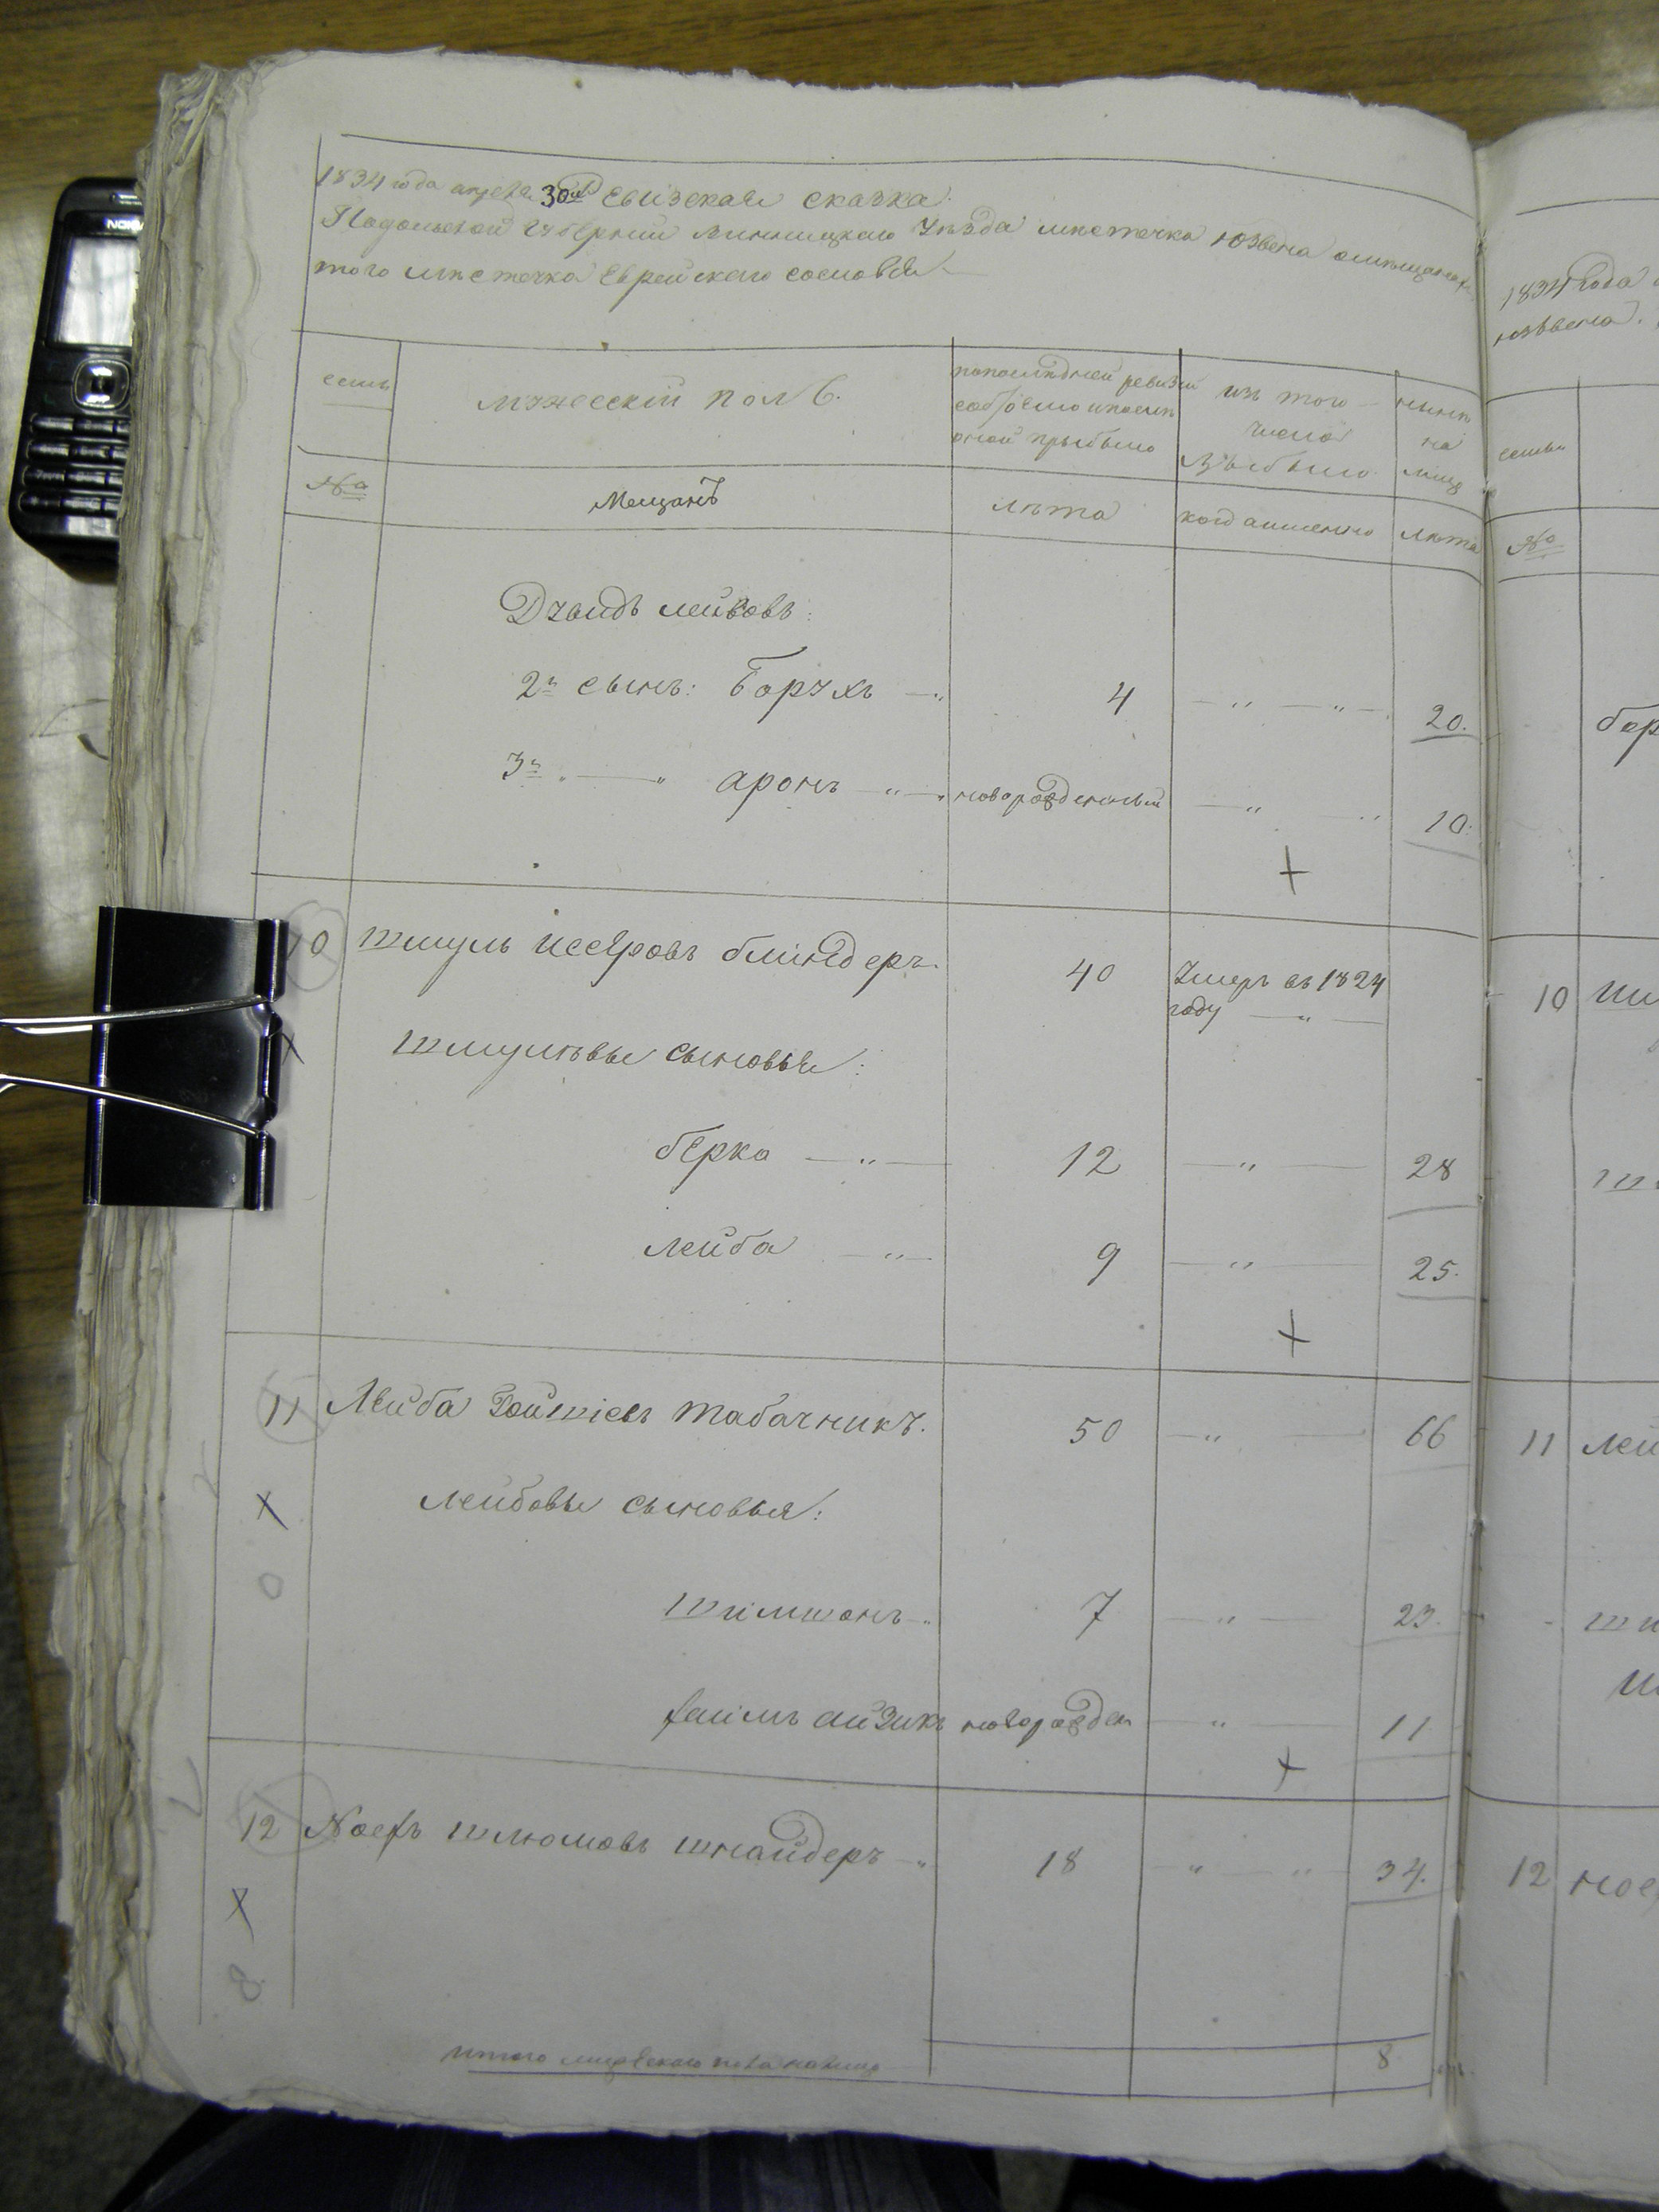 1834 года апреля 30го Евизская сказка.
Подольской Губернии Винницкаго Уезда местечка Юзвена омещанах
того местечка Еврейскаго сословия
семьи
мужескій полъ.
попоследней ревизии
состояло ипосле
оной прыбыло
изъ того
числа
выбыло
ныне
на
лицо
№
Мещанъ
лета
когда именно
лета
Дувидъ лейбовъ:
2й сынъ: Борухъ 4 20.
3й аронъ новорожденный 10.
+
10 шмуль иееровъ блиндеръ 40 Умеръ въ 1824
году
х шмулевы сыновья:
берко 12 28
лейба 9 25.
+
11 Лейба табачникъ. 50 66
х лейбовы сыновья:
0
шимшонъ 7 23.
хаимъ айзикъ новорожден 11
+
12 Иосфъ шлюмовъ шнайдеръ 18 34.
х
8
итого мужескаго пола налицо 8
NOKIA
1834 Года
юзвена.
семьи
№
бор
10 Шм
11 лей
ши
12 иос